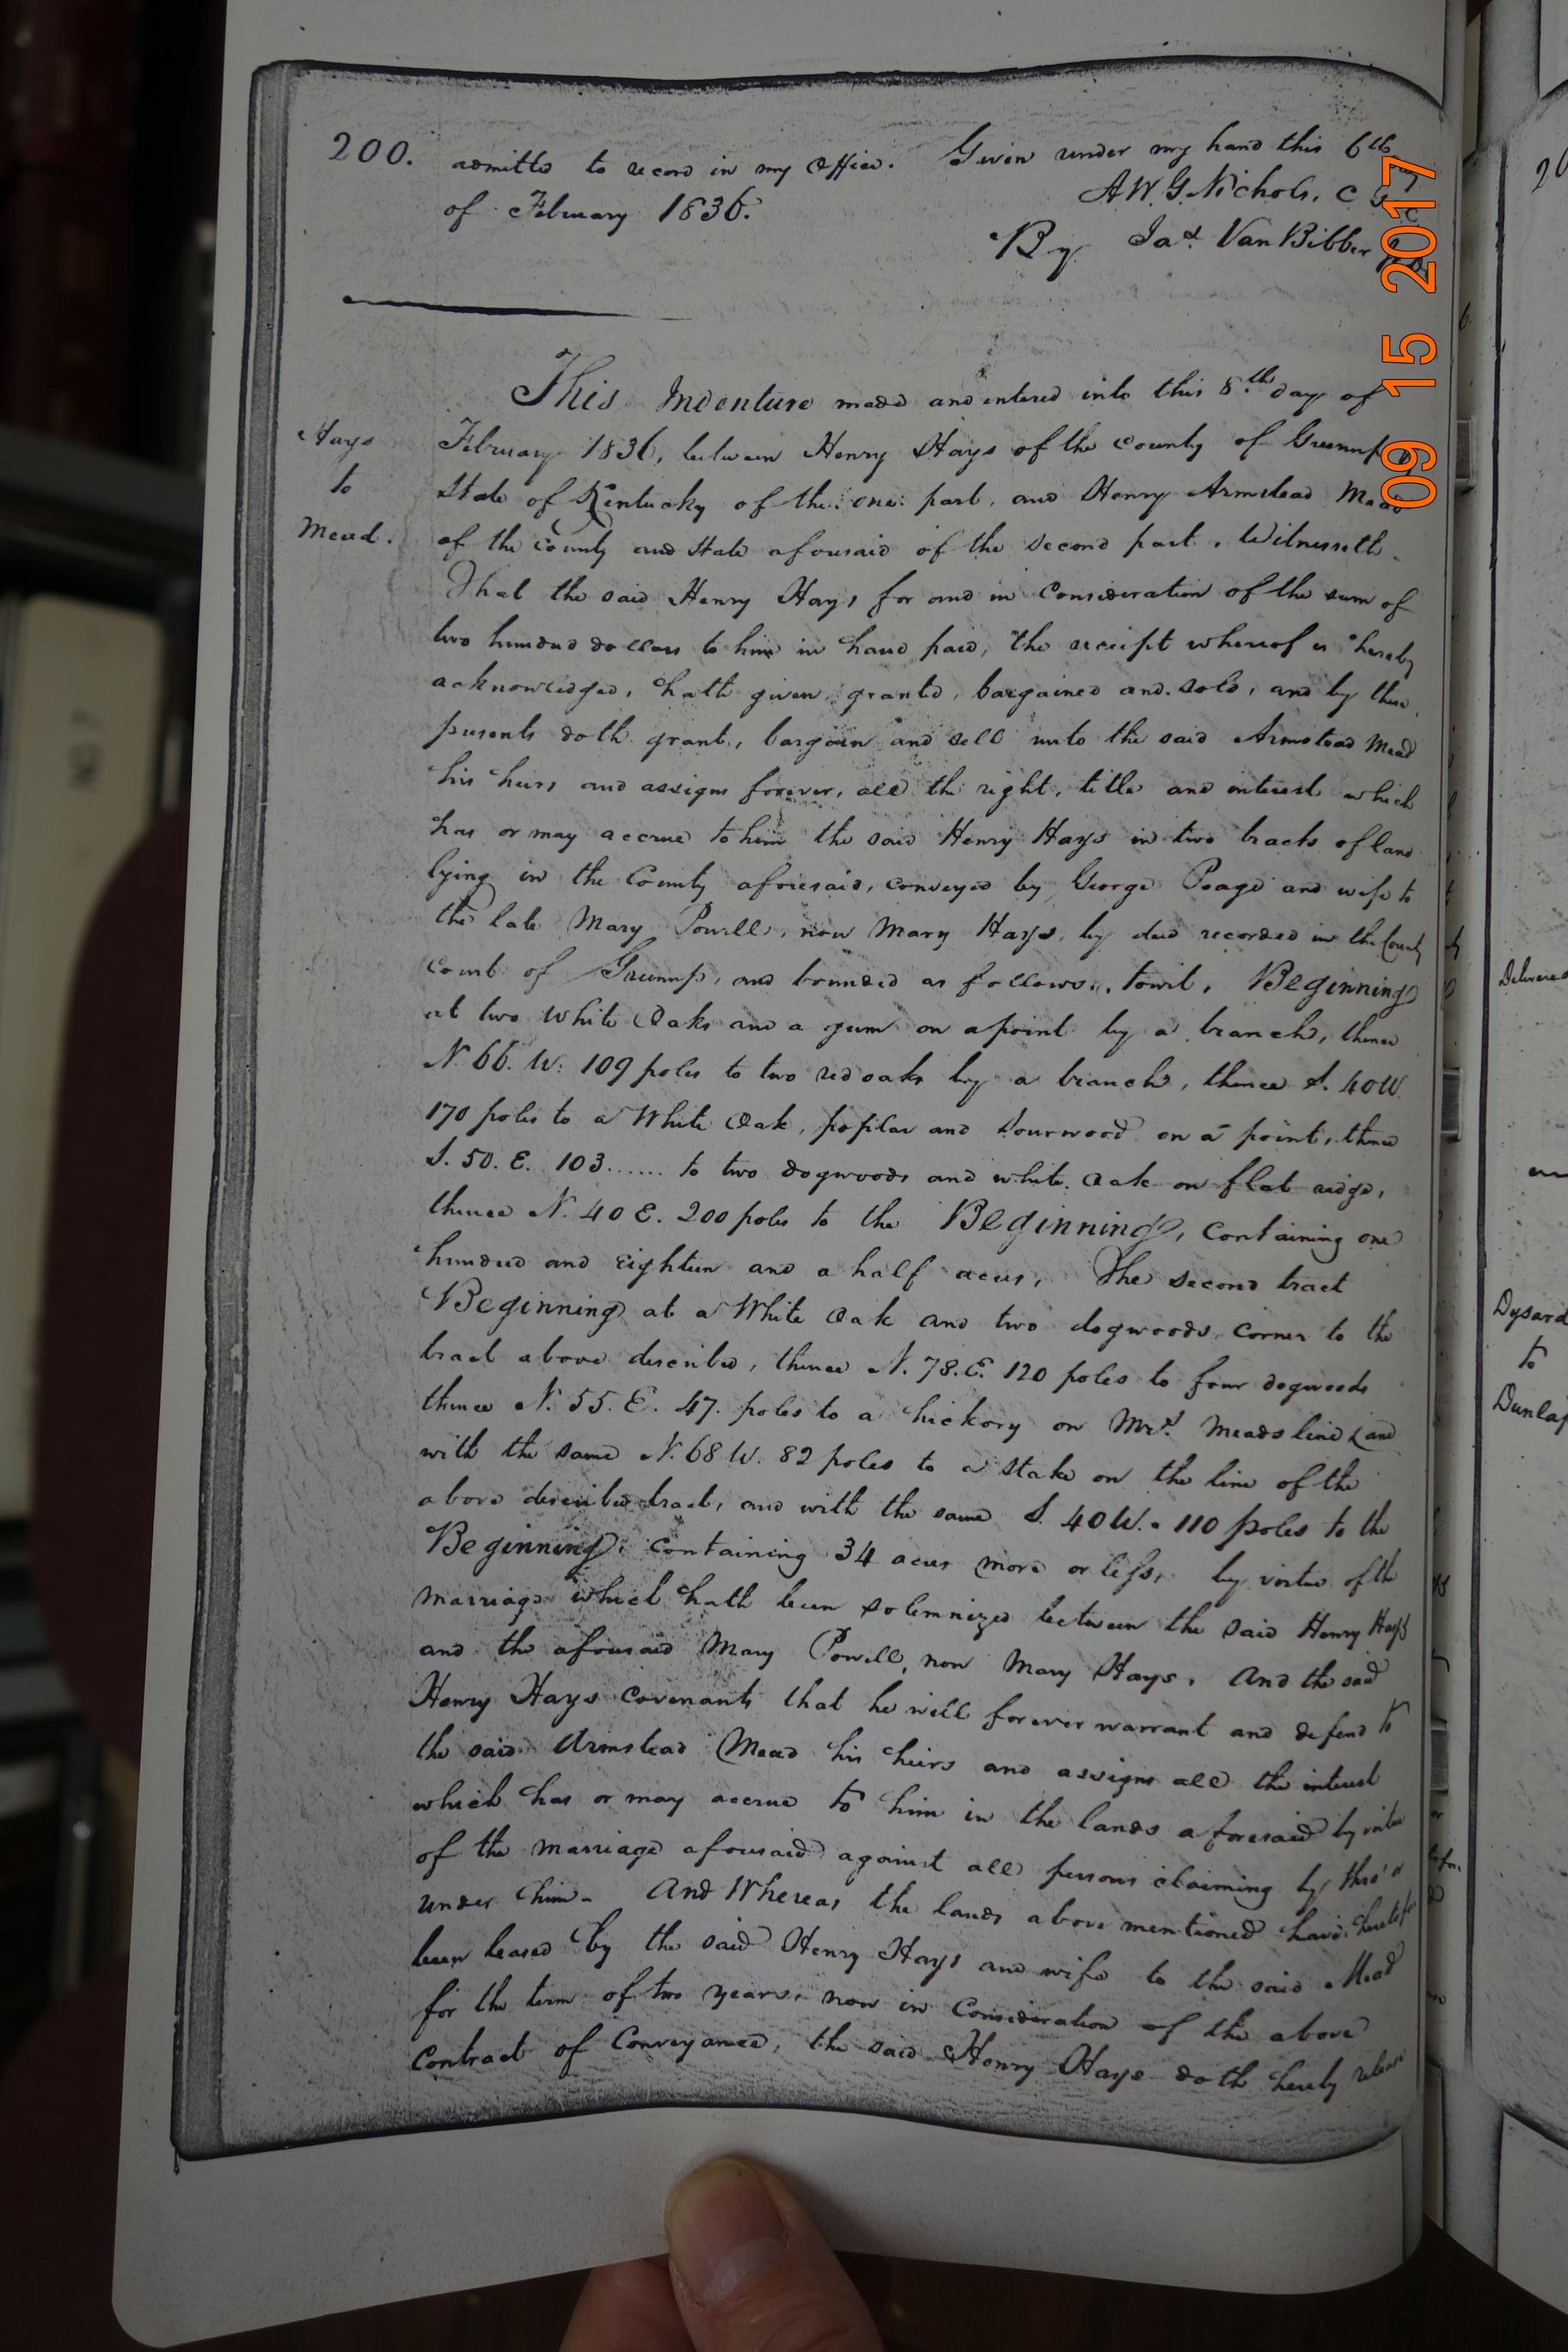 200.
admitted to record in my office. Given under my hand this 6th
of February 1836.
A. W. G. Nichols, C G
By Jas. Van Bibber
Hays
to
Mead.
This Indenture made and entered into this 8.th day of
February 1836, between Henry Hays of the county of Greenup
State of Kentucky of the one part, and Henry Armstead Mead
of the County and State aforesaid of the second part, Witnesseth
That the said Henry Hays for and in Consideration of the sum of
two hundred dollars to him in hand paid, the receipt whereof is hereby
acknowledged, hath given, granted, bargained and sold, and by these
presents doth grant, bargain and sell unto the said Armstead Mead
his heirs and assigns forever, all the right, title and interest which
has or may accrue to him the said Henry Hays in two tracts of land
lying in the County aforesaid, conveyed by George Poage and wife to
the late Mary Powell, now Mary Hays, by deed recorded in the County
Court of Greenup, and bounded as follows, towit, Beginning
at two White Oaks and a gum on a point by a branch, thence
N. 66. W. 109 poles to two red oaks by a branch, thence S. 40 W.
170 poles to a White Oak, poplar and Sourwood on a point, thence
S. 50. E. 103...... to two dogwoods and white Oak on flat ridge,
thence N. 40 E. 200 poles to the Beginning, Containing one
hundred and Eighteen and a half acres, The second tract
Beginning at a White Oak and two dogwoods, corner to the
tract above described, thence N. 78. E. 120 poles to four dogwoods
thence N. 55. E. 47. poles to a hickory on Mrs. Meads line & and
with the same N. 68 W. 82 poles to a Stake on the line of the
above described tract, and with the same S. 40 W. 110 poles to the
Beginning, Containing 34 acres more or less, by virtue of the
marriage which hath been solemnized between the said Henry Hays
and the aforesaid Mary Powell, now Mary Hays, And the said
Henry Hays covenants that he will forever warrant and defend to
the said Armstead Mead his heirs and assigns all the interest
which has or may accrue to him in the lands aforesaid by virtue
of the marriage aforesaid against all persons claiming by thro' or
under him - And Whereas the lands above mentioned have heretofore
been leased by the said Henry Hays and wife to the said Mead
for the term of two years, now in Consideration of the above
Contract of Conveyance, the said Henry Hays doth hereby release
09 15 2017
20
Dysard
to
Dunlap